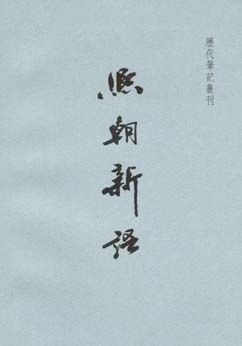 歷代筆記叢刊
熙朝新語